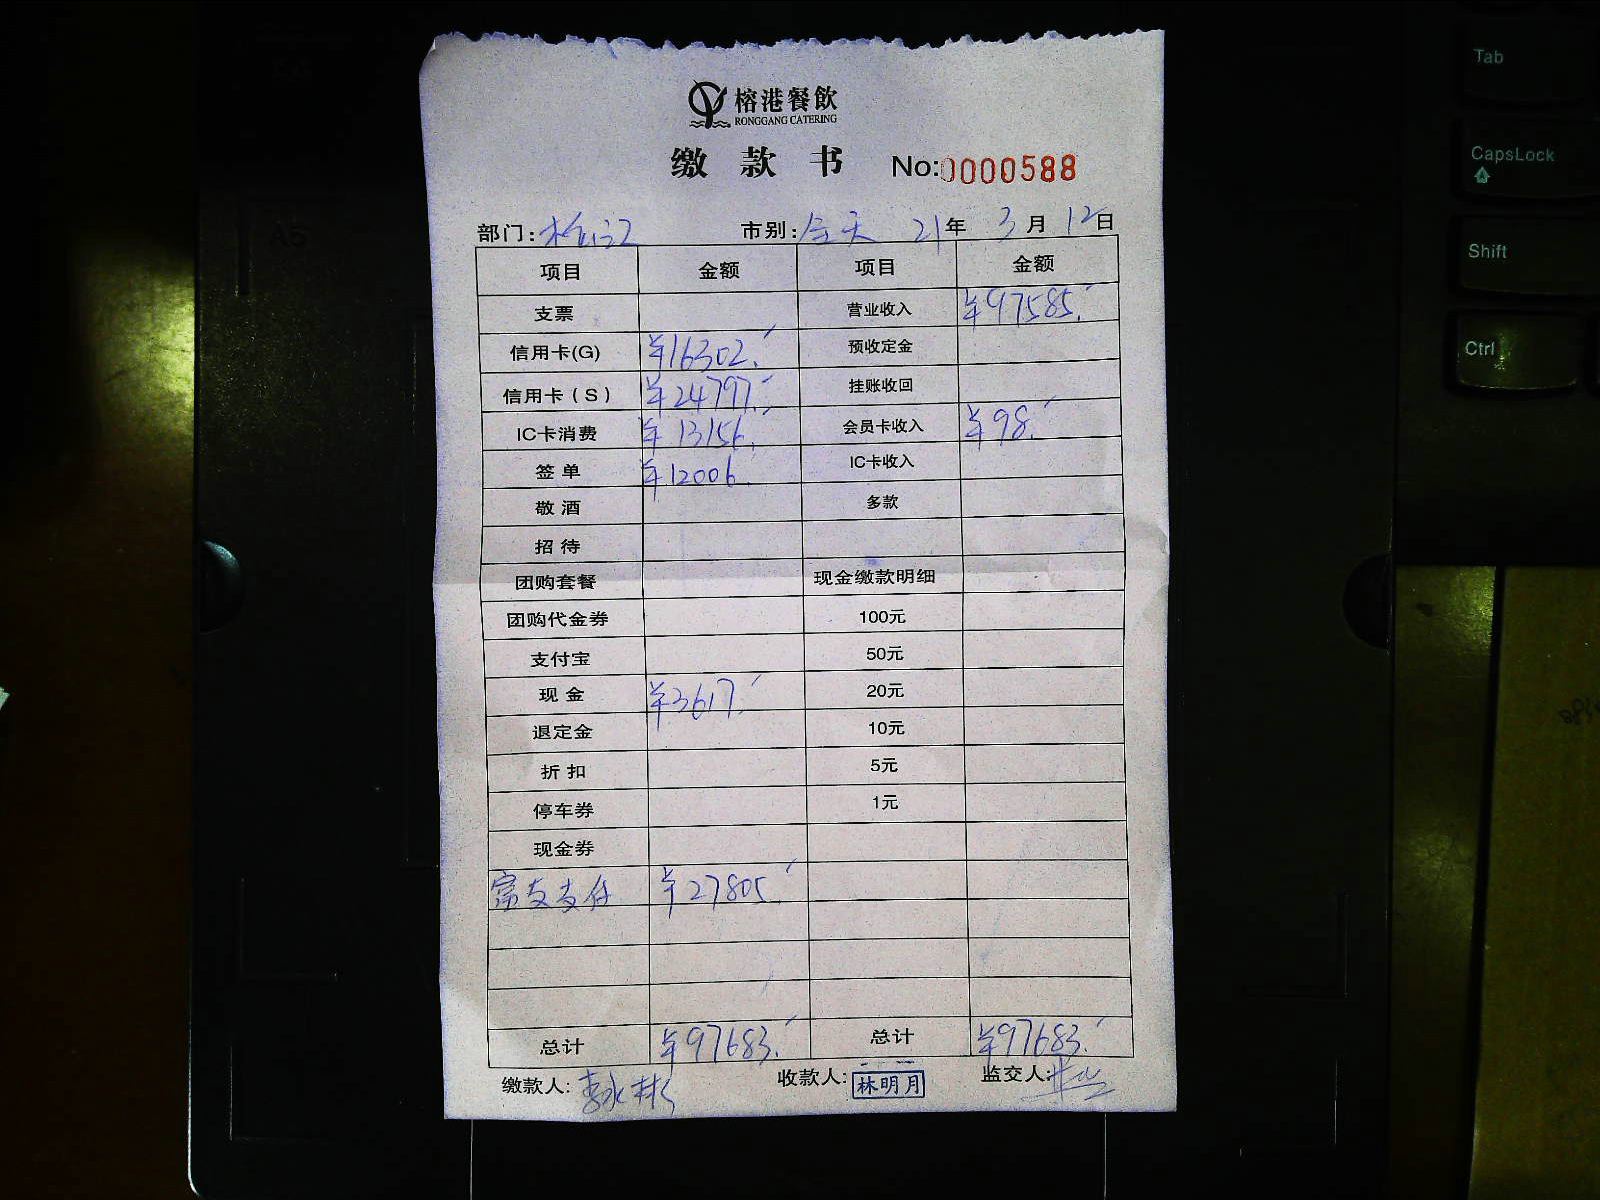 榕港餐飲
RONGGANG CATERING
缴 款 书 No:0000588
部门: 市别:全天 21年 3月 12日
项目 金额 项目 金额
支票 营业收入 ¥97585.
信用卡(G) ¥16302. 预收定金
信用卡(S) ¥24797. 挂账收回
IC卡消费 ¥13156. 会员卡收入 ¥98.
签单 ¥12006. IC卡收入
敬酒 多款
招待
团购套餐 现金缴款明细
团购代金券 100元
支付宝 50元
现金 ¥3617. 20元
退定金 10元
折扣 5元
停车券 1元
现金券
支付 ¥27805.
总计 ¥97683. 总计 ¥97683.
缴款人:李永彬 收款人:林明月 监交人:
Tab
CapsLock
Shift
Ctrl
A5